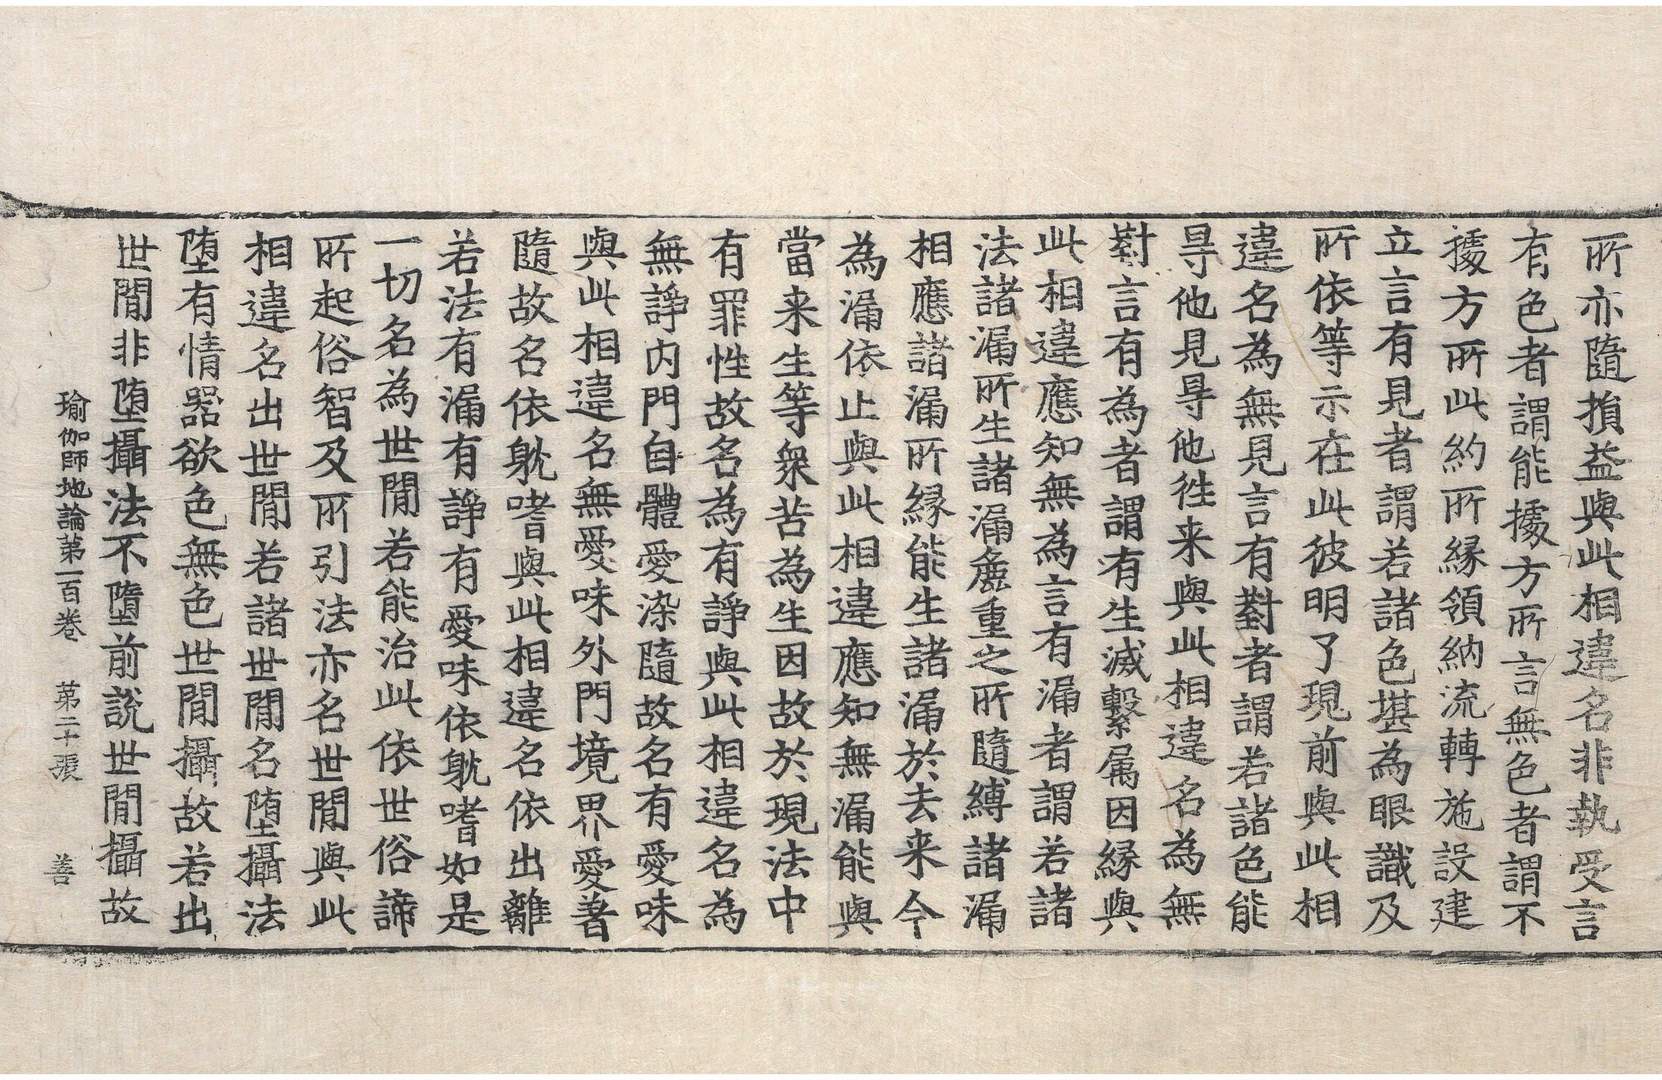 所亦隨損益與此相違名非執受言
有色者謂能據方所言無色者謂不
據方所此約所緣領納流轉施設建
立言有見者謂若諸色堪為眼識及
所依等示在此彼明了現前與此相
違名為無見言有對者謂若諸色能
㝵他見㝵他徃来與此相違名為無
對言有為者謂有生滅繫属因緣與
此相違應知無為言有漏者謂若諸
法諸漏所生諸漏麁重之所隨縛諸漏
相應諸漏所緣能生諸漏於去来今
為漏依止與此相違應知無漏能與
當来生等衆苦為生因故於現法中
有罪性故名為有諍與此相違名為
無諍内門自體愛染隨故名有愛味
與此相違名無愛味外門境界愛著
隨故名依躭嗜與此相違名依出離
若法有漏有諍有愛味依躭嗜如是
一切名為世間若能治此依世俗諦
所起俗智及所引法亦名世間與此
相違名出世間若諸世間名堕攝法
堕有情器欲色無色世間攝故若出
世間非堕攝法不墮前說世間攝故
瑜伽師地論第一百卷　第二十張　善